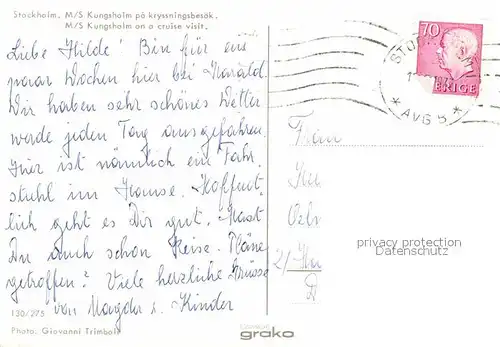 Stockholm. M/S Kungsholm på kryssningsbesök.
M/S Kungsholm on a cruise visit.
Liebe Hilde! Bin für ein
paar Wochen hier bei Harald.
Wir haben sehr schönes Wetter
werde jeden Tag ausgefahren.
Hier ist nämlich ein Fahr
stuhl im Hause. Hoffent-
lich geht es Dir gut. Hast
Du auch schon Reise-Pläne
getroffen? Viele herzliche Grüsse
von Magda u. Kinder
130/275
Photo: Giovanni Trimboli
grako
70
SVERIGE
AVG B
Frau
21
D
privacy protection
Datenschutz